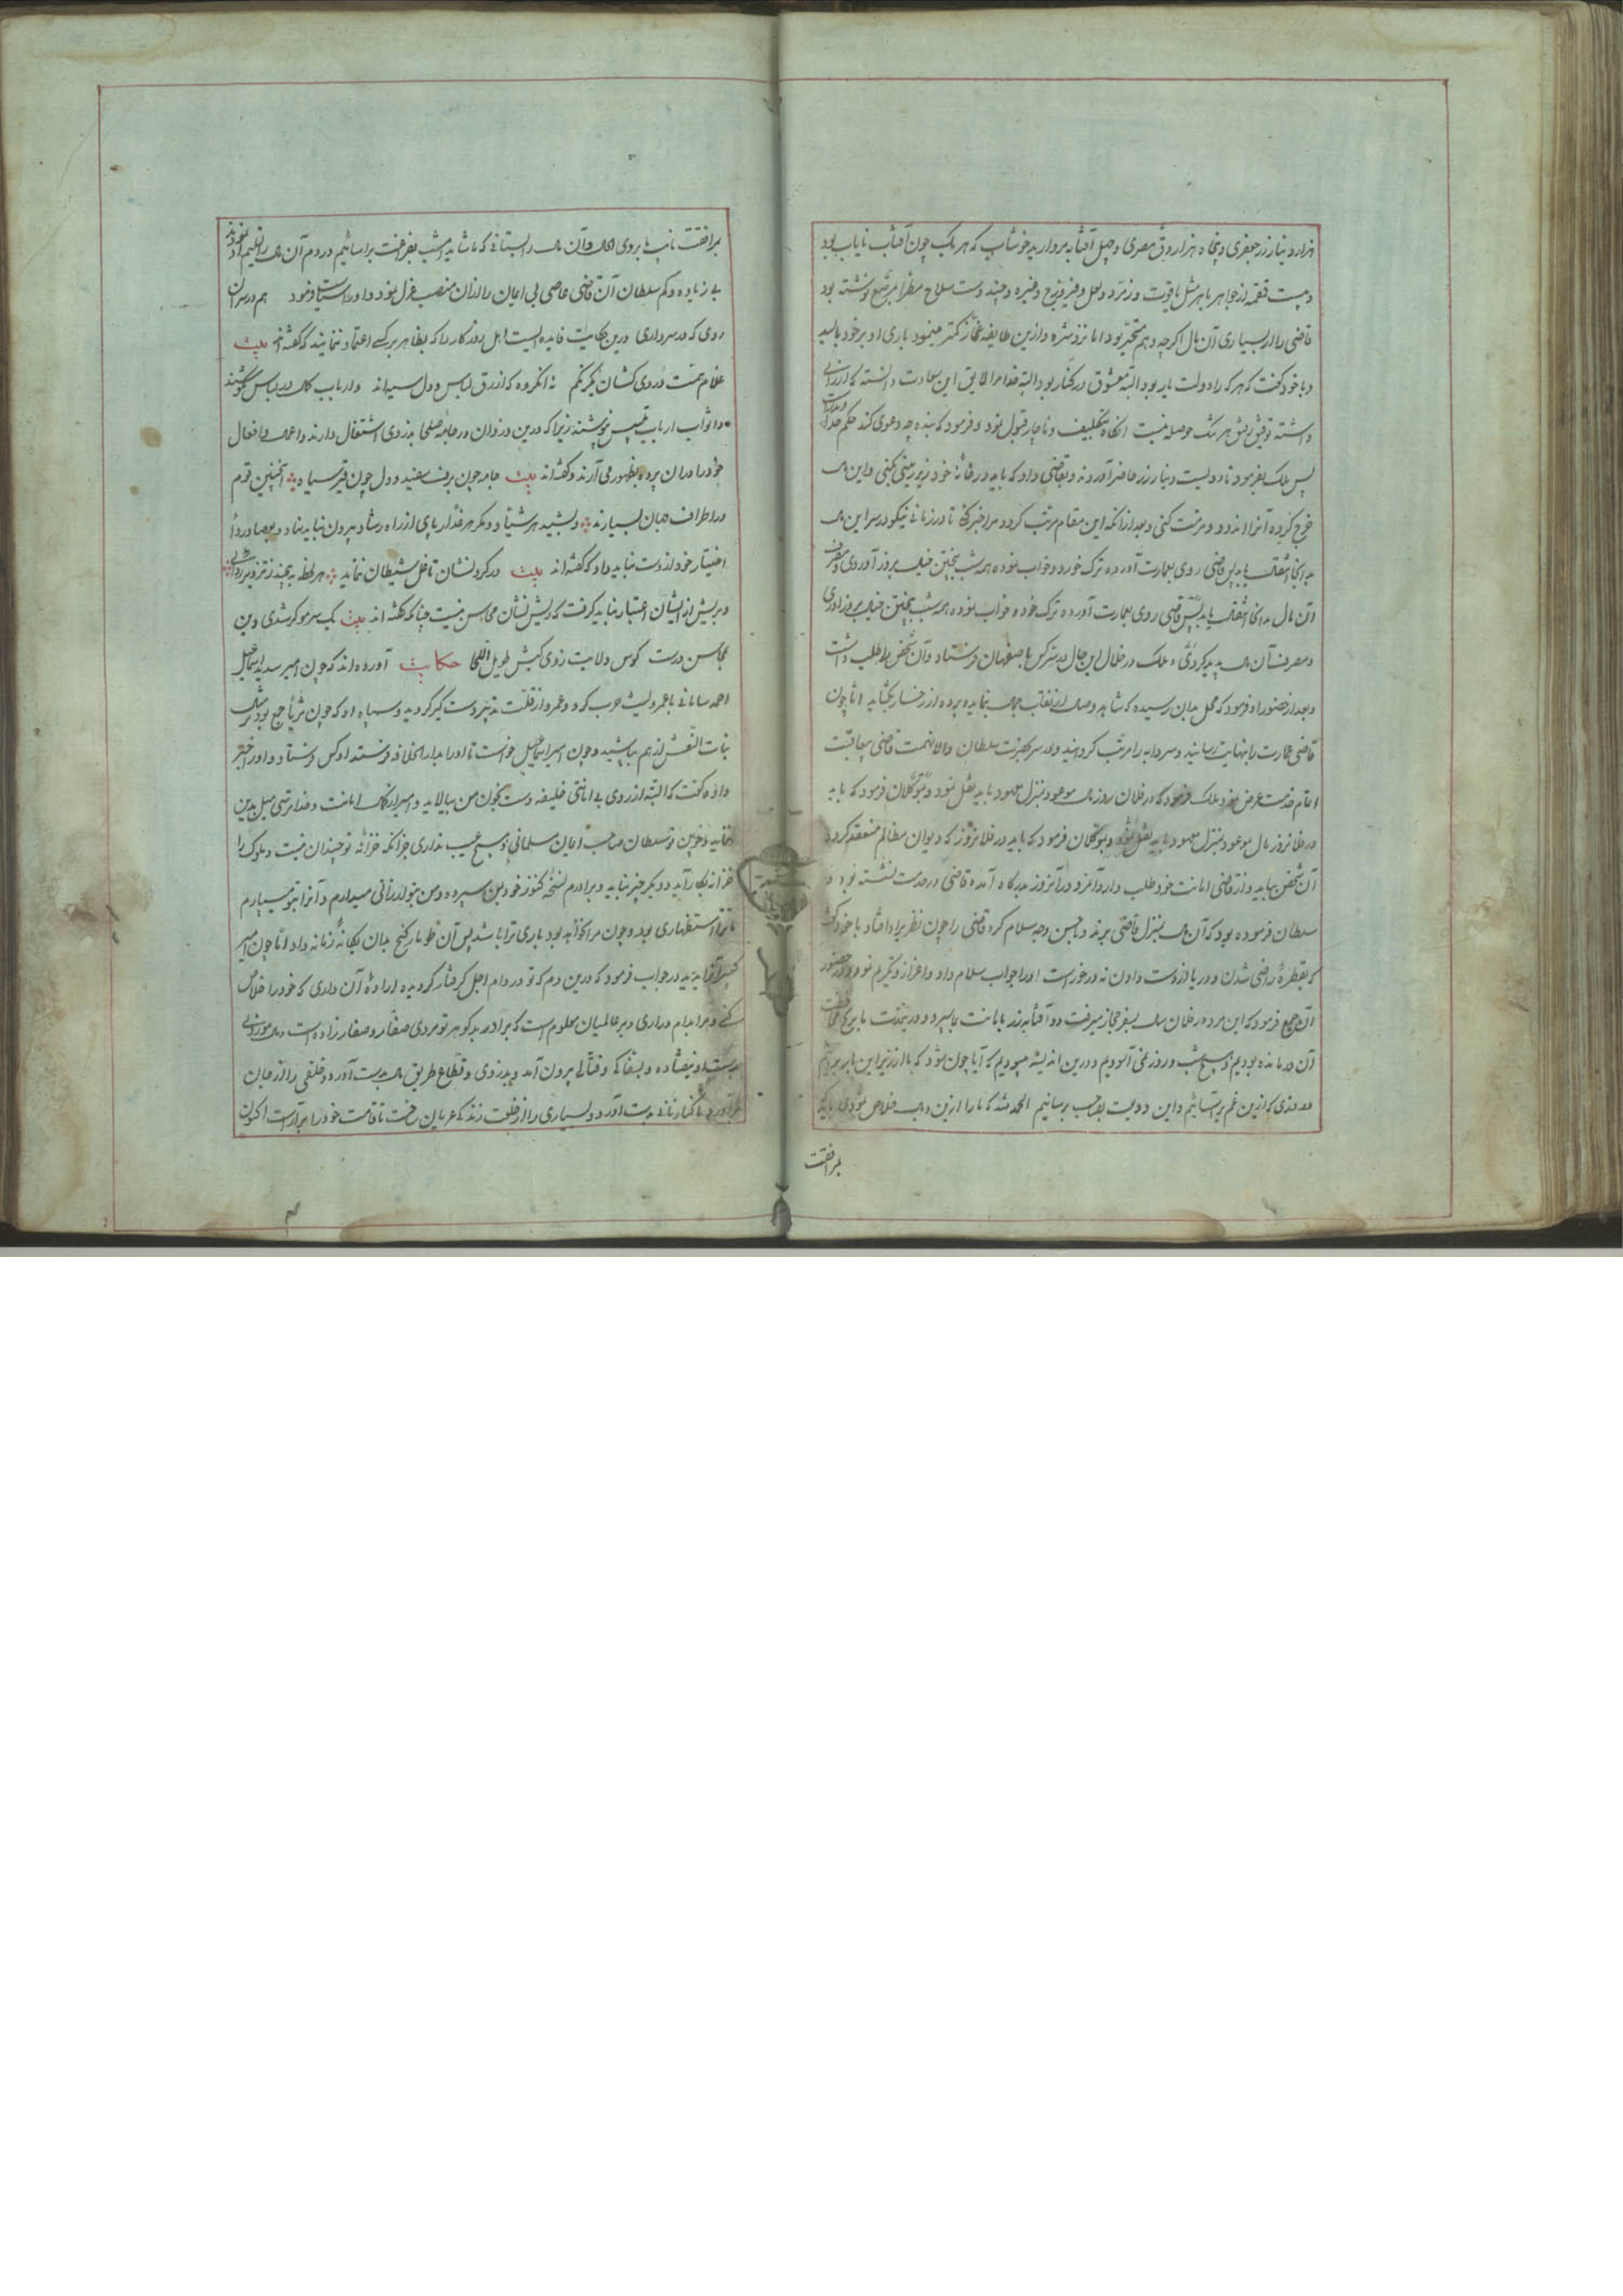 هزار دینار زر جعفری و پنجاه هزار ورق مصری و چهل آفتابه مروارید خوشاب که هر یک چون آفتاب نایاب بود
و بیست قمقمه از جواهر باهر مثل یاقوت و زمرد و لعل و فیروزج و غیره و چند دست سلاح مطرا مرصع نوشته بود
قاضی را از بسیاری آن مال اگرچه وهم متحیر بود اما نزد مژه و ازین طایفه غماز کمتر مینمود باری او بر خود بالید
و با خود گفت که هر که را دولت یار بود البته معشوق در کنار بود البته خدا مرا لایق این سعادت دانسته که ارزانی
داشته توفیق رفیق هر تنک حوصله نیست آنگاه بتکلیف و ناچار قبول نمود و فرمود که بنده چه دعوی کند حکم خداوند راست
پس ملک بفرمود تا دویست دینار زر حاضر آوردند و بقاضی داد که باید در خانه خود زیرزمینی بکنی و این مال
خرج کرده آنرا اندود و مرمت کنی و بعد از آنکه این مقام مرتب گردد مرا خبر کنی تا در زمانی نیکو در سر این مال
بدانجا انتقال یابد پس قاضی روی بعمارت آورده ترک خورد و خواب نموده همه شب بپختن خیال بروز آوردی و مصرف
آن مال بدانجا انتقال یابد پس قاضی روی بعمارت آورده ترک خورد و خواب نموده همه شب بپختن خیال بروز آوردی
و مصرف آن مال پدید کردی و ملک در خلال این حال در سر کس باصفهان فرستاد و آن شخص را طلب داشت
و بعد از حضور او فرمود که محل بدان رسیده که شاهد وصال از نقاب جمال بنماید و پرده از رخسار بگشاید اما چون
قاضی عمارت را بنهایت رسانید و سردابه را مرتب گردانید و در سر بحضرت سلطان والا نهمت قاضی بی عاقبت
اتمام خدمت عرض نمود ملک فرمود که در فلان روز مال موعود بمنزل معهود باید نقل نمود و بموکلان فرمود که باید
در فلانروز مال موعود بمنزل معهود باید نقل نمود و بموکلان فرمود که باید در فلانروز که دیوان مظالم منعقد گردد
آن شخص بیاید و از قاضی امانت خود طلب دارد آنمرد در آنروز بدرگاه آمد و قاضی در خدمت نشسته بود و
سلطان فرموده بود که آن مال بمنزل قاضی برند باحسن وجه سلام کرد قاضی را چون نظر بر او افتاد با خود گفت
که بقطره راضی شدن و دریا از دست دادن نه درخور است او را جواب سلام داد و اعزاز و تکریم نمود و در حضور
آن جمع فرمود که این مرد در فلان سال بسفر حجاز میرفت و دو آفتابه زر بامانت بما سپرد و در بمدت ما برنج محافظت
آن درمانده بودیم و هیچ شب و روز نمی آسودیم و درین اندیشه میبودیم که آیا چون شود که ما از زیر این بار برهیم
و روزی که ازین غم برآساییم و این ودیعت بصاحب برسانیم الحمد لله که ما را ازین وبال خلاص نمودی باید که
برافقت
برافقت نایب ما بروی الحال و آن مال را بستانی که ما شاید امشب بفراغت برآساییم در دم آن مال را تسلیم او نمودند
بی زیاده و کم سلطان آن قاضی عاصی بی ایمان را از آن منصب عزل نمود و او را سیاست فرمود هم در سر آن
روی که در سر داری درین حکایت فایده ایست اهل روزگار را که بظاهر هر کس اعتماد ننمایند که گفته اند بیت
غلام همت دردی کشان یکرنگم نه آنگروه که ازرق لباس و دل سیه اند و ارباب کمال در لباس نکوشند
و اثواب ارباب تلبیس نپوشند زیرا که درین دزدان در جامه صلحا بدزدی اشتغال دارند و اعمال و افعال
خود را در آن پرده بظهور می آرند و گفته اند بیت جامه چون برف سفید و دل چون قیر سیاه اینچنین قوم
در اطراف جهان بسیارند و بشید هر شیاد و مکر هر غدار پای از راه رشاد بیرون نباید نهاد و بعصا و ردا
اختیار خود از دست نباید داد که گفته اند بیت در گردنشان تا خل شیطان نماید هر لحظه بجنبد ز تزویر ردائی
و بریش از ایشان اعتبار نباید گرفت که ریش نشان محاسن نیست چنانکه گفته اند بیت یک سر مو گر شدی دین
بمحاسن درست کوس ولایت زدی کبش طویل اللحا حکایت آورده اند که چون امیر سدید اسماعیل
احمد سامانی با عمرو لیث حرب کرد و عمرو از قلت تدبیر دستگیر گردید و سپاه او که چون ثریا جمع بودند مثل
بنات النعش از هم بپاشید و چون امیر اسماعیل خواست تا او را بدار الخلافه فرستد او کس فرستاد و او را خبر
داده گفت که البته از روی بی امانتی خلیفه دست بخون من بیالاید و امیر آنگاه امانت و خداترسی میل بدین
ننماید و چون تو سلطان صاحب ایمان مسلمانی و هیچ عیب نداری جز آنکه خزانه تو چندان نیست و ملوک را
خزانه بکار آید و دیگر چیز نباید و برادرم نسخه کنوز خود بمن سپرده و من بتو ارزانی میدارم و آنرا بتو میسپارم
تا ترا استظهاری بود و چون مرا نخواهد بود باری ترا باشد پس آن طومار گنج بدان یگانه زمانه داد اما چون امیر
کبیر آنرا بدید در جواب فرمود که درین دم که تو در دام اجل گرفتار گردیده اراده آن داری که خود را خلاص
کنی و مرا بدام در آری و بر عالمیان معلوم است که برادر بد گوهر تو مردی صفار و صفارزاده است و مال موروثی
بدست او نیفتاده و بسفاکی و قتالی بیرون آمد و بدزدی و قطاع طریق مال بدست آورد و خلقی را از میان
برآورد تا کنار نانی بدست آورد و بسیاری را از خلعت زندگی عریان ساخت تا قامت خود را بیاراست اکنون